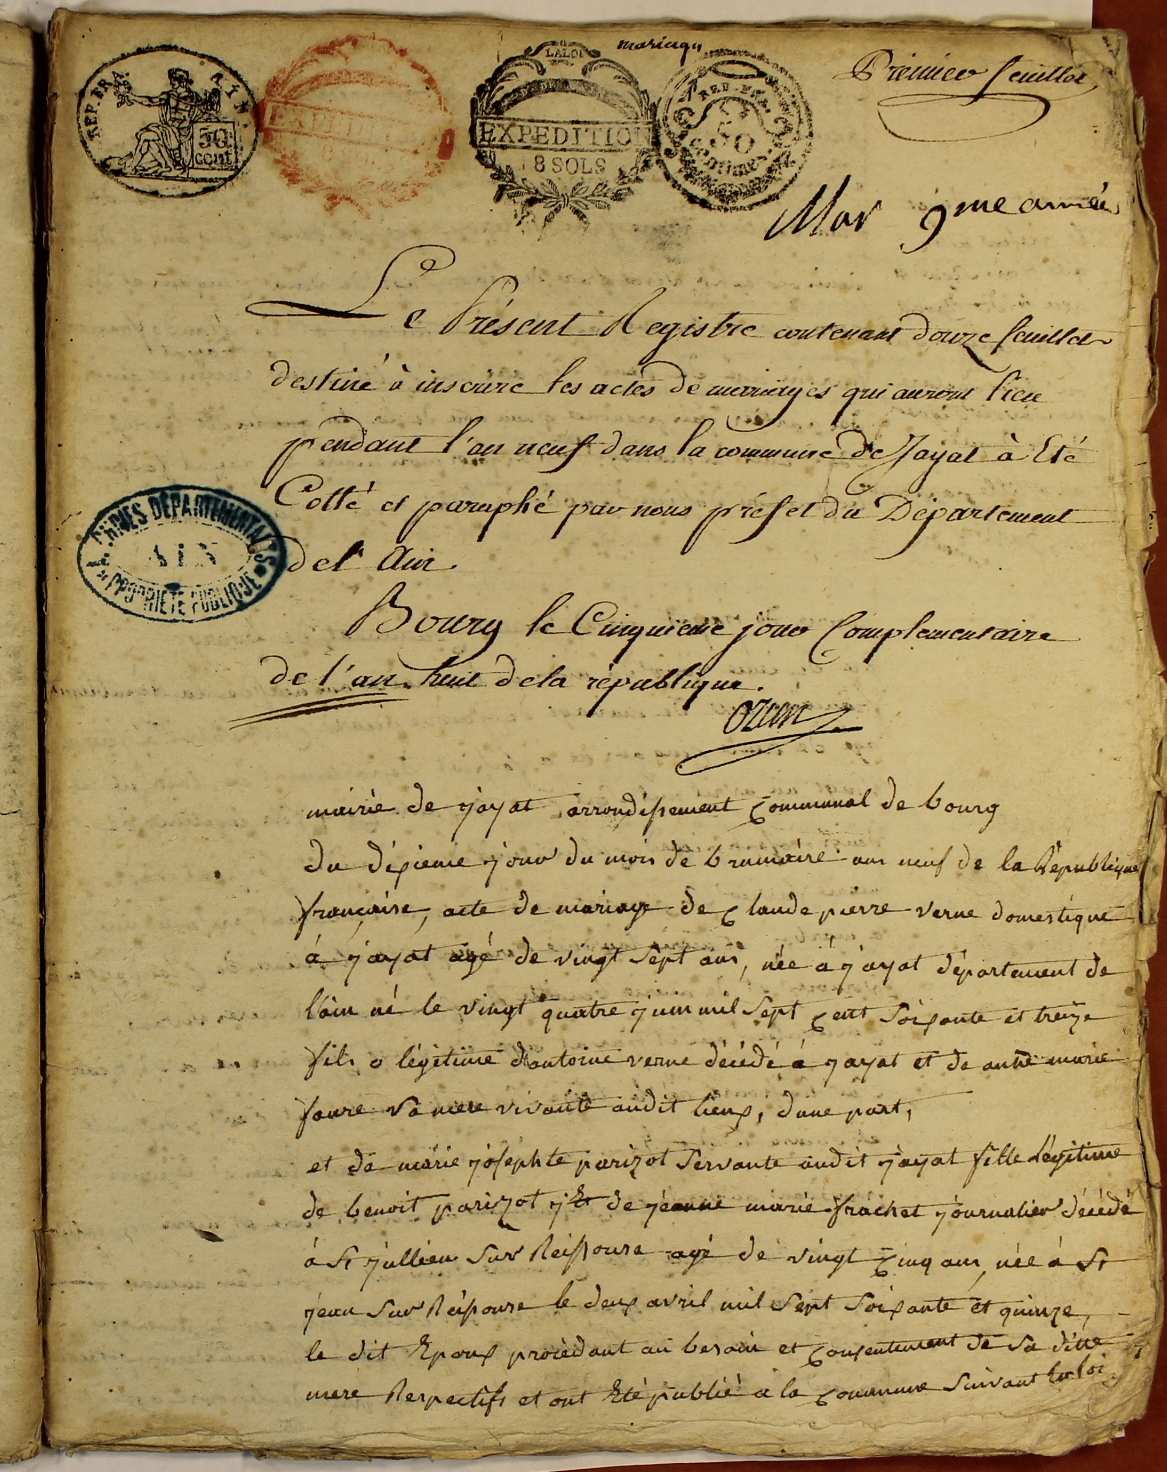 mariages
Premier feuillet
REP. FRA. AIN
50 cent
EXPEDITION
LA LOI
EXPEDITION
8 SOLS
REP. FRA.
50
Centimes
Mar 9me année
Le Présent Registre contenant douze feuillets
destiné à inscrire les actes de mariages qui auront lieu
pendant l'an neuf dans la commune de Jayat à Eté
Cotté et paraphé par nous préfet du Département
de l'Ain.
ARCHIVES DÉPARTEMENTALES
AIN
PROPRIÉTÉ PUBLIQUE
Bourg le Cinquieme jour Complementaire
de l'an huit de la république.
Ozun
mairie de jayat arrondissement communal de bourg
du dixieme jour du mois de brumaire an neuf de la République
française, acte de mariage de claude pierre verne domestique
à jayat agé de vingt sept ans, née à jayat département de
l'ain né le vingt quatre juin mil sept cent soixante et treize
fils légitime d'antoine verne décédé à jayat et de anne marie
faure sa mere vivante audit lieux, dune part,
et de marie josephte parizot servante audit jayat fille légitime
de benoit parizot et de jeanne marie frachet journalier décédé
à St jullien sur Reissouse agé de vingt cinq ans, née à St
jean sur Reissouse le deux avril mil sept soixante et quinze,
le dit Epoux procédant au besoin et consentement de sa ditte
mere Respectifs et ont Eté publié a la commune suivant la loi